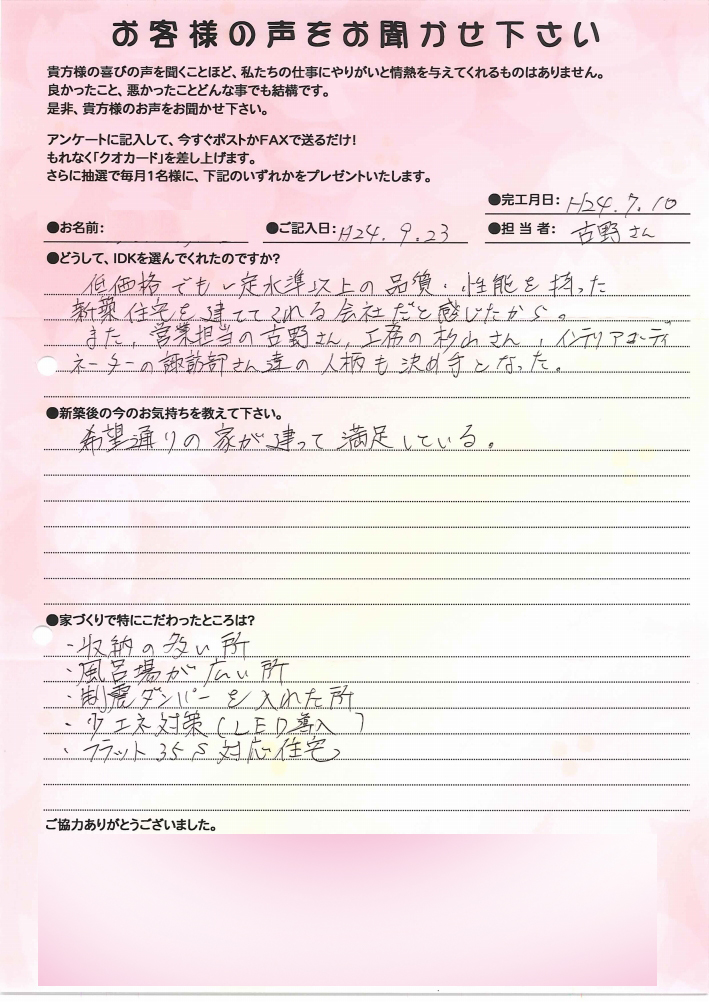 お客様の声をお聞かせ下さい
貴方様の喜びの声を聞くことほど、私たちの仕事にやりがいと情熱を与えてくれるものはありません。
良かったこと、悪かったことどんな事でも結構です。
是非、貴方様のお声をお聞かせ下さい。
アンケートに記入して、今すぐポストかFAXで送るだけ!
もれなく「クオカード」を差し上げます。
さらに抽選で毎月1名様に、下記のいずれかをプレゼントいたします。
●完工月日: H24.7.10
●お名前: ●ご記入日: H24.9.23 ●担当者: 古野さん
●どうして、IDKを選んでくれたのですか?
低価格でも一定水準以上の品質・性能を持った
新築住宅を建ててくれる会社だと感じたから。
また、営業担当の古野さん、工務の杉山さん、インテリアコーディ
ネーターの諏訪部さん達の人柄も決め手となった。
●新築後の今のお気持ちを教えて下さい。
希望通りの家が建って満足している。
●家づくりで特にこだわったところは?
・収納の多い所
・風呂場が広い所
・制震ダンパーを入れた所
・省エネ対策(LED導入)
・フラット35S対応住宅
ご協力ありがとうございました。